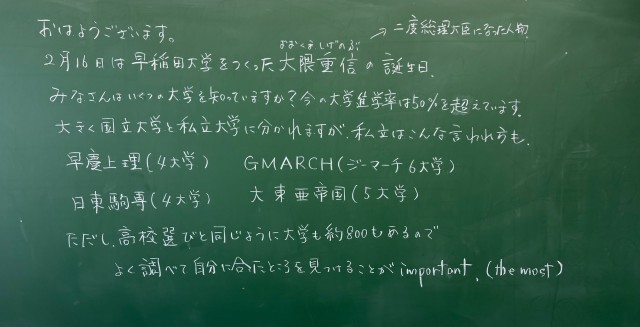 おはようございます。
→ 二度総理大臣になった人物
おおくましげのぶ
2月16日は早稲田大学をつくった大隈重信の誕生日。
みなさんはいくつの大学を知っていますか?今の大学進学率は50%を超えています。
大きく国立大学と私立大学に分かれますが、私立はこんな言われ方も。
早慶上理(4大学) GMARCH(ジーマーチ6大学)
日東駒専(4大学) 大東亜帝国(5大学)
ただし、高校選びと同じように大学も約800もあるので
よく調べて自分に合ったところを見つけることが important. (the most)